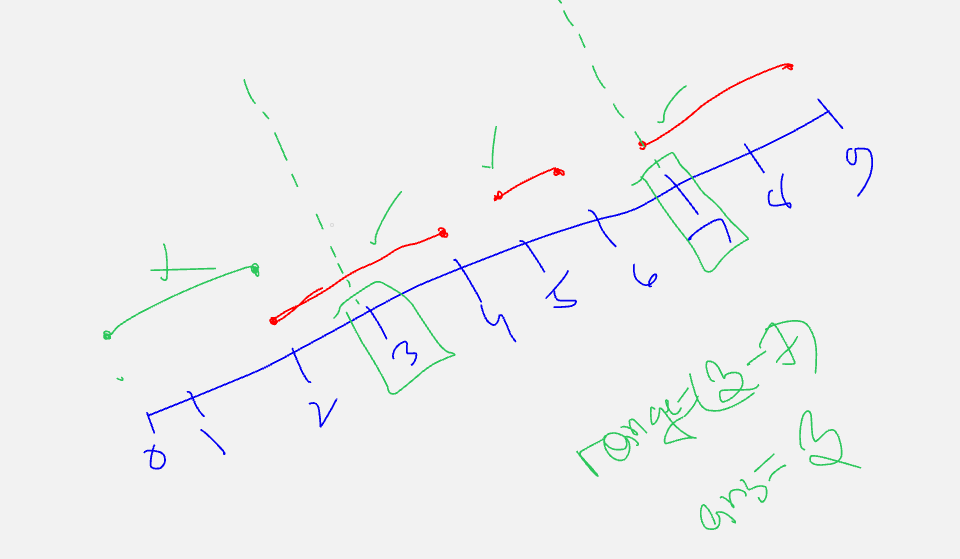 0 1 2 3 4 5 6 7 8 9
range(3-7)
ans= 3